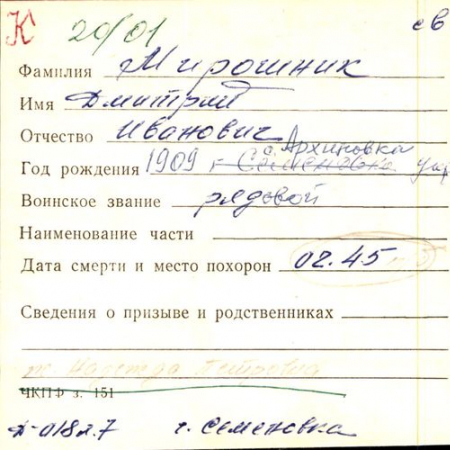 К 20/01 св
Фамилия Мирошник
Имя Дмитрий
Отчество Иванович
с. Архиповка
Год рождения 1909 г. Семеновка укр
Воинское звание рядовой
Наименование части
Дата смерти и место похорон 02.45
Сведения о призыве и родственниках
ж Надежда Петровна
ЧКПФ з. 151
г. Семеновка